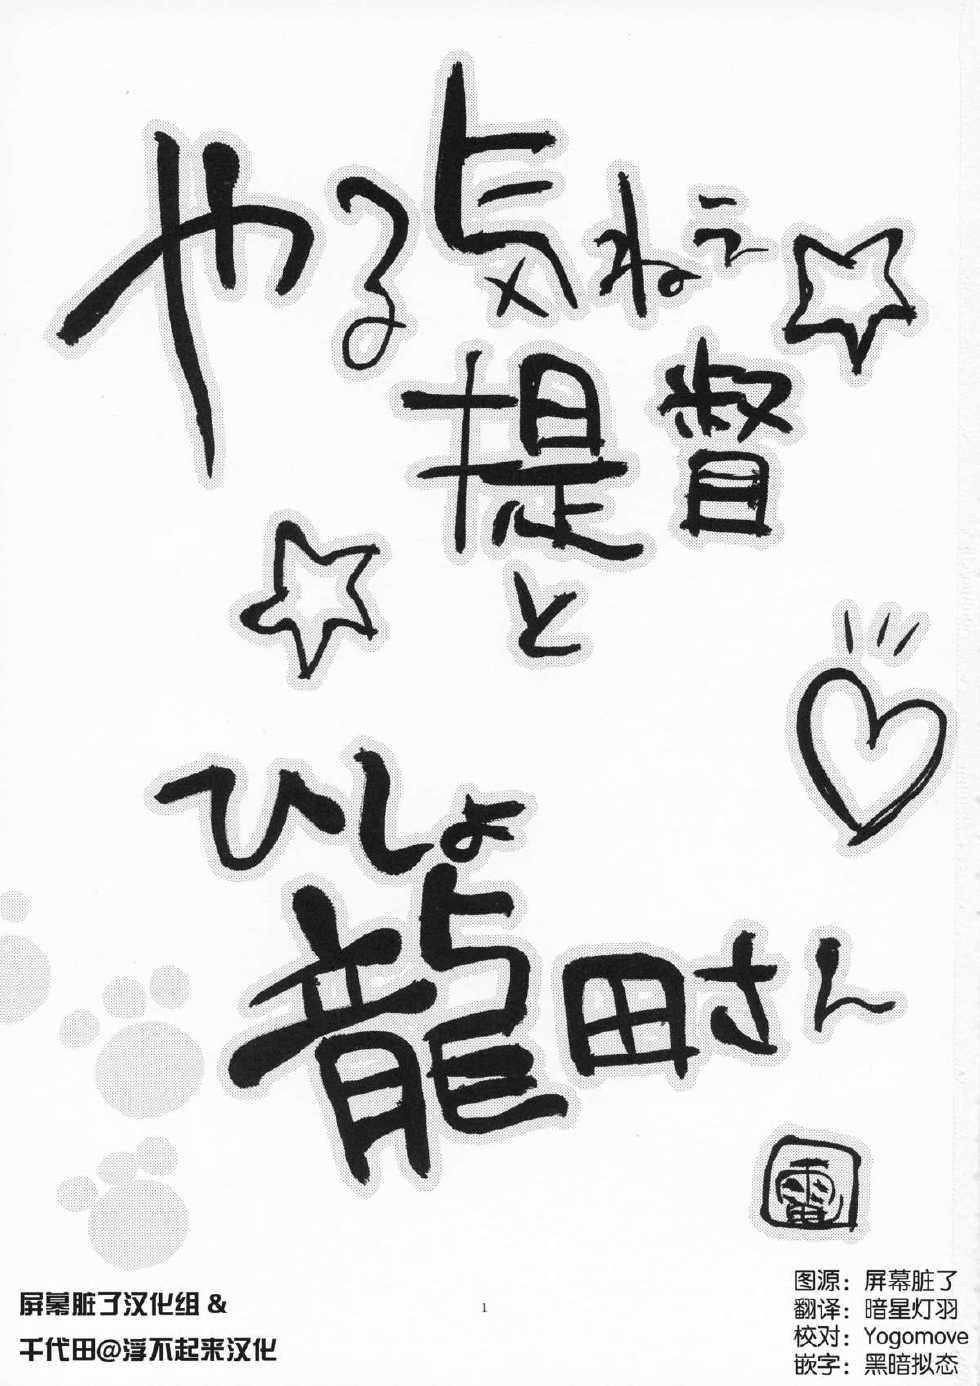 やる気ねェ☆
提督
と
ひしょ
龍田さん
屏幕脏了汉化组 &
千代田@浮不起来汉化
1
图源：屏幕脏了
翻译：暗星灯羽
校对：Yogomove
嵌字：黑暗拟态